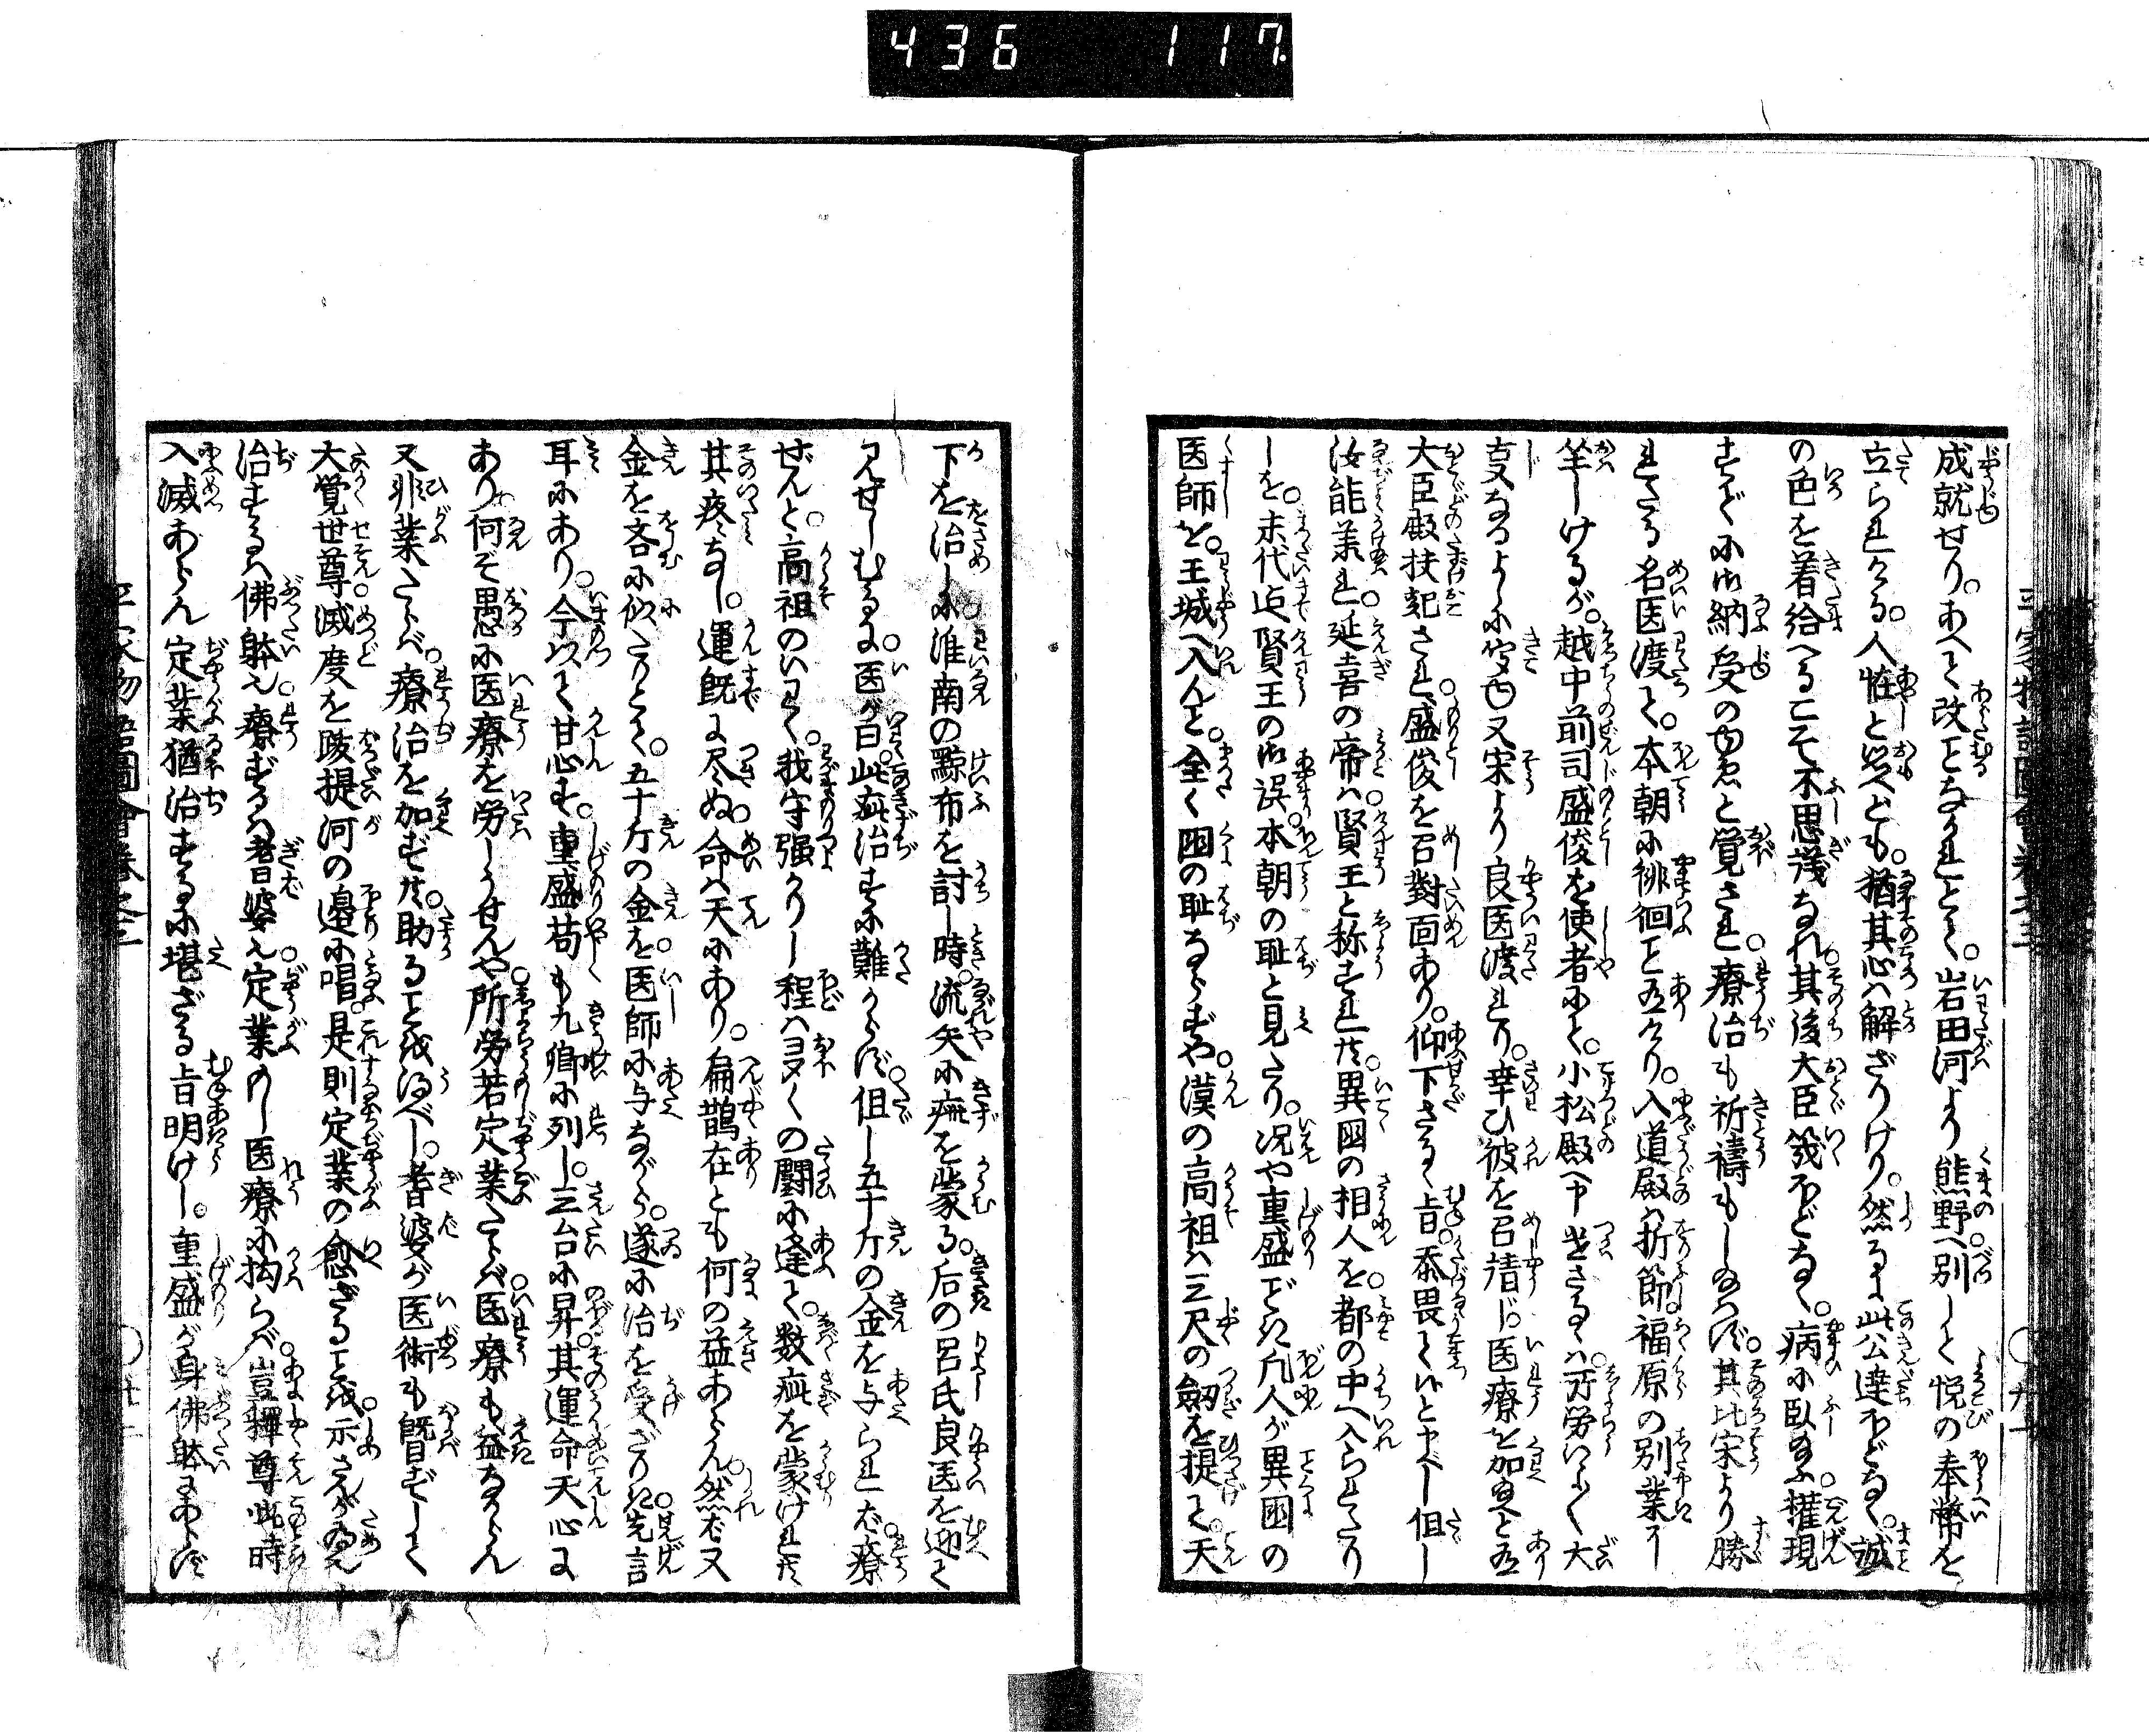 436 117
成就せり。あへて改ることなかれとて。岩田河より熊野へ別して悦の奉幣を
立られける。人怪と思へども。猶其心は解ざりけり。然るに此公達ほどなく。誠
の色を着給へるこそ不思議なれ。其後大臣幾ほどなく。病に臥給ふ。権現
すでに御納受のゆゑと覚され。療治も祈祷もし給はず。其比宋より勝
れたる名医渡て。本朝に徘徊こと有けり。入道殿は折節福原の別業に
坐しけるが。越中前司盛俊を使者にて。小松殿へ申さるゝは。所労いよ〱大
事なるよし聞ゆ又宋より良医渡れり。幸ひ彼を召請じ。医療を加へと有
大臣殿扶起され。盛俊を召対面あり。仰下さるゝ旨。忝畏ていと申べし但し
汝能業れ。延喜の帝は賢王と称すれ共。異国の相人を。都の中へ入られたり
しを。末代迄賢王の御誤。本朝の恥と見えたり。況や重盛どき凡人が異国の
医師を。王城へ入んと。全く国の恥ならずや。漢の高祖は三尺の剣を提て。天
下を治しに淮南の黥布を討し時。流矢に疵を蒙る。后の呂氏良医を迎て
見せしむるに。医が曰。此疵治すに難からず。但し五十斤の金を与られば。療
ぜんと。高祖のいはく。我守強かりし程は多くの闘に逢て。数疵を蒙けれ共
其疼なし。運既に尽ぬ。命は天にあり。扁鵲在とも何の益あらん。然ば又
金を吝に似たりとて。五十斤の金を。医師に与ながら。遂に治を受ざりき。先言
耳にあり。今以て甘心す。重盛苟も九卿に列し。三台に昇。其運命天心に
あり。何ぞ愚に医療を労しうせんや。所労若定業たらば。医療も益なからん
又非業たらば。療治を加ず共。助ることを得べし。耆婆が医術も及ずして
大覚世尊。滅度を跋提河の辺に唱。是則定業の愈ざることを。示さんが為也
治するは佛躰也。療ずるは耆婆也。定業のし医療に拘らば。豈釋尊此時
入滅あらん定業猶治するに堪ざる旨明けし。重盛が身佛躰にあらず